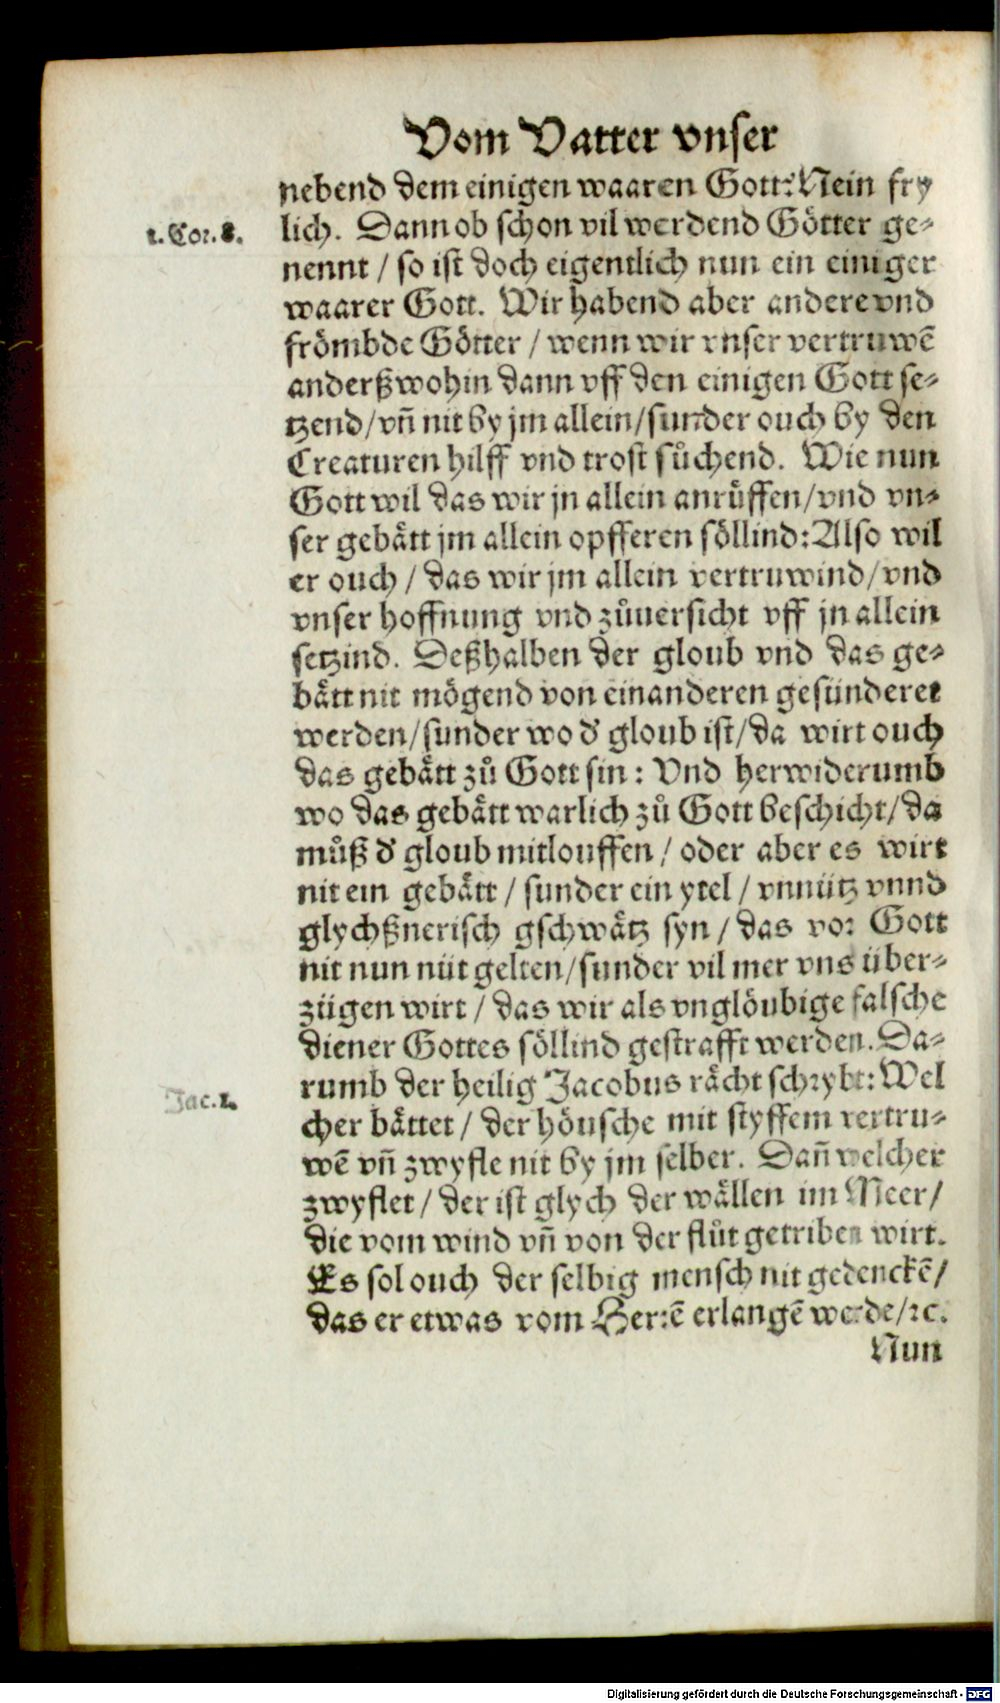 Vom Vatter vnser
nebend dem einigen waaren Gott? Nein fry
1. Cor. 8.
lich. Dann ob schon vil werdend Götter ge⸗
nennt / so ist doch eigentlich nun ein einiger
waarer Gott. Wir habend aber andere vnd
frömbde Götter / wenn wir vnser vertruwē
anderßwohin dann vff den einigen Gott se⸗
tzend / vn̄ nit by jm allein / sunder ouch by den
Creaturen hilff vnd trost sůchend. Wie nun
Gott wil das wir jn allein anrüffen / vnd vn⸗
ser gebätt jm allein opfferen söllind: Also wil
er ouch / das wir jm allein vertruwind / vnd
vnser hoffnung vnd zůuersicht vff jn allein
setzind. Deßhalben der gloub vnd das ge⸗
bätt nit mögend von einanderen gesünderet
werden / sunder wo d' gloub ist / da wirt ouch
das gebätt zů Gott sin: Vnd herwiderumb
wo das gebätt warlich zů Gott beschicht / da
můß d' gloub mitlouffen / oder aber es wirt
nit ein gebätt / sunder ein ytel / vnnütz vnnd
glychßnerisch gschwätz syn / das vor Gott
nit nun nüt gelten / sunder vil mer vns über⸗
zügen wirt / das wir als vnglöubige falsche
diener Gottes söllind gestrafft werden. Da⸗
Jac. 1.
rumb der heilig Jacobus rächt schrybt: Wel
cher bättet / der höusche mit styffem vertru⸗
wē vn̄ zwyfle nit by jm selber. Dan̄ welcher
zwyflet / der ist glych der wällen im Meer /
die vom wind vn̄ von der flůt getriben wirt.
Es sol ouch der selbig mensch nit gedenckē /
das er etwas vom Herrē erlangē werde / ꝛc.
Nun
Digitalisierung gefördert durch die Deutsche Forschungsgemeinschaft - DFG